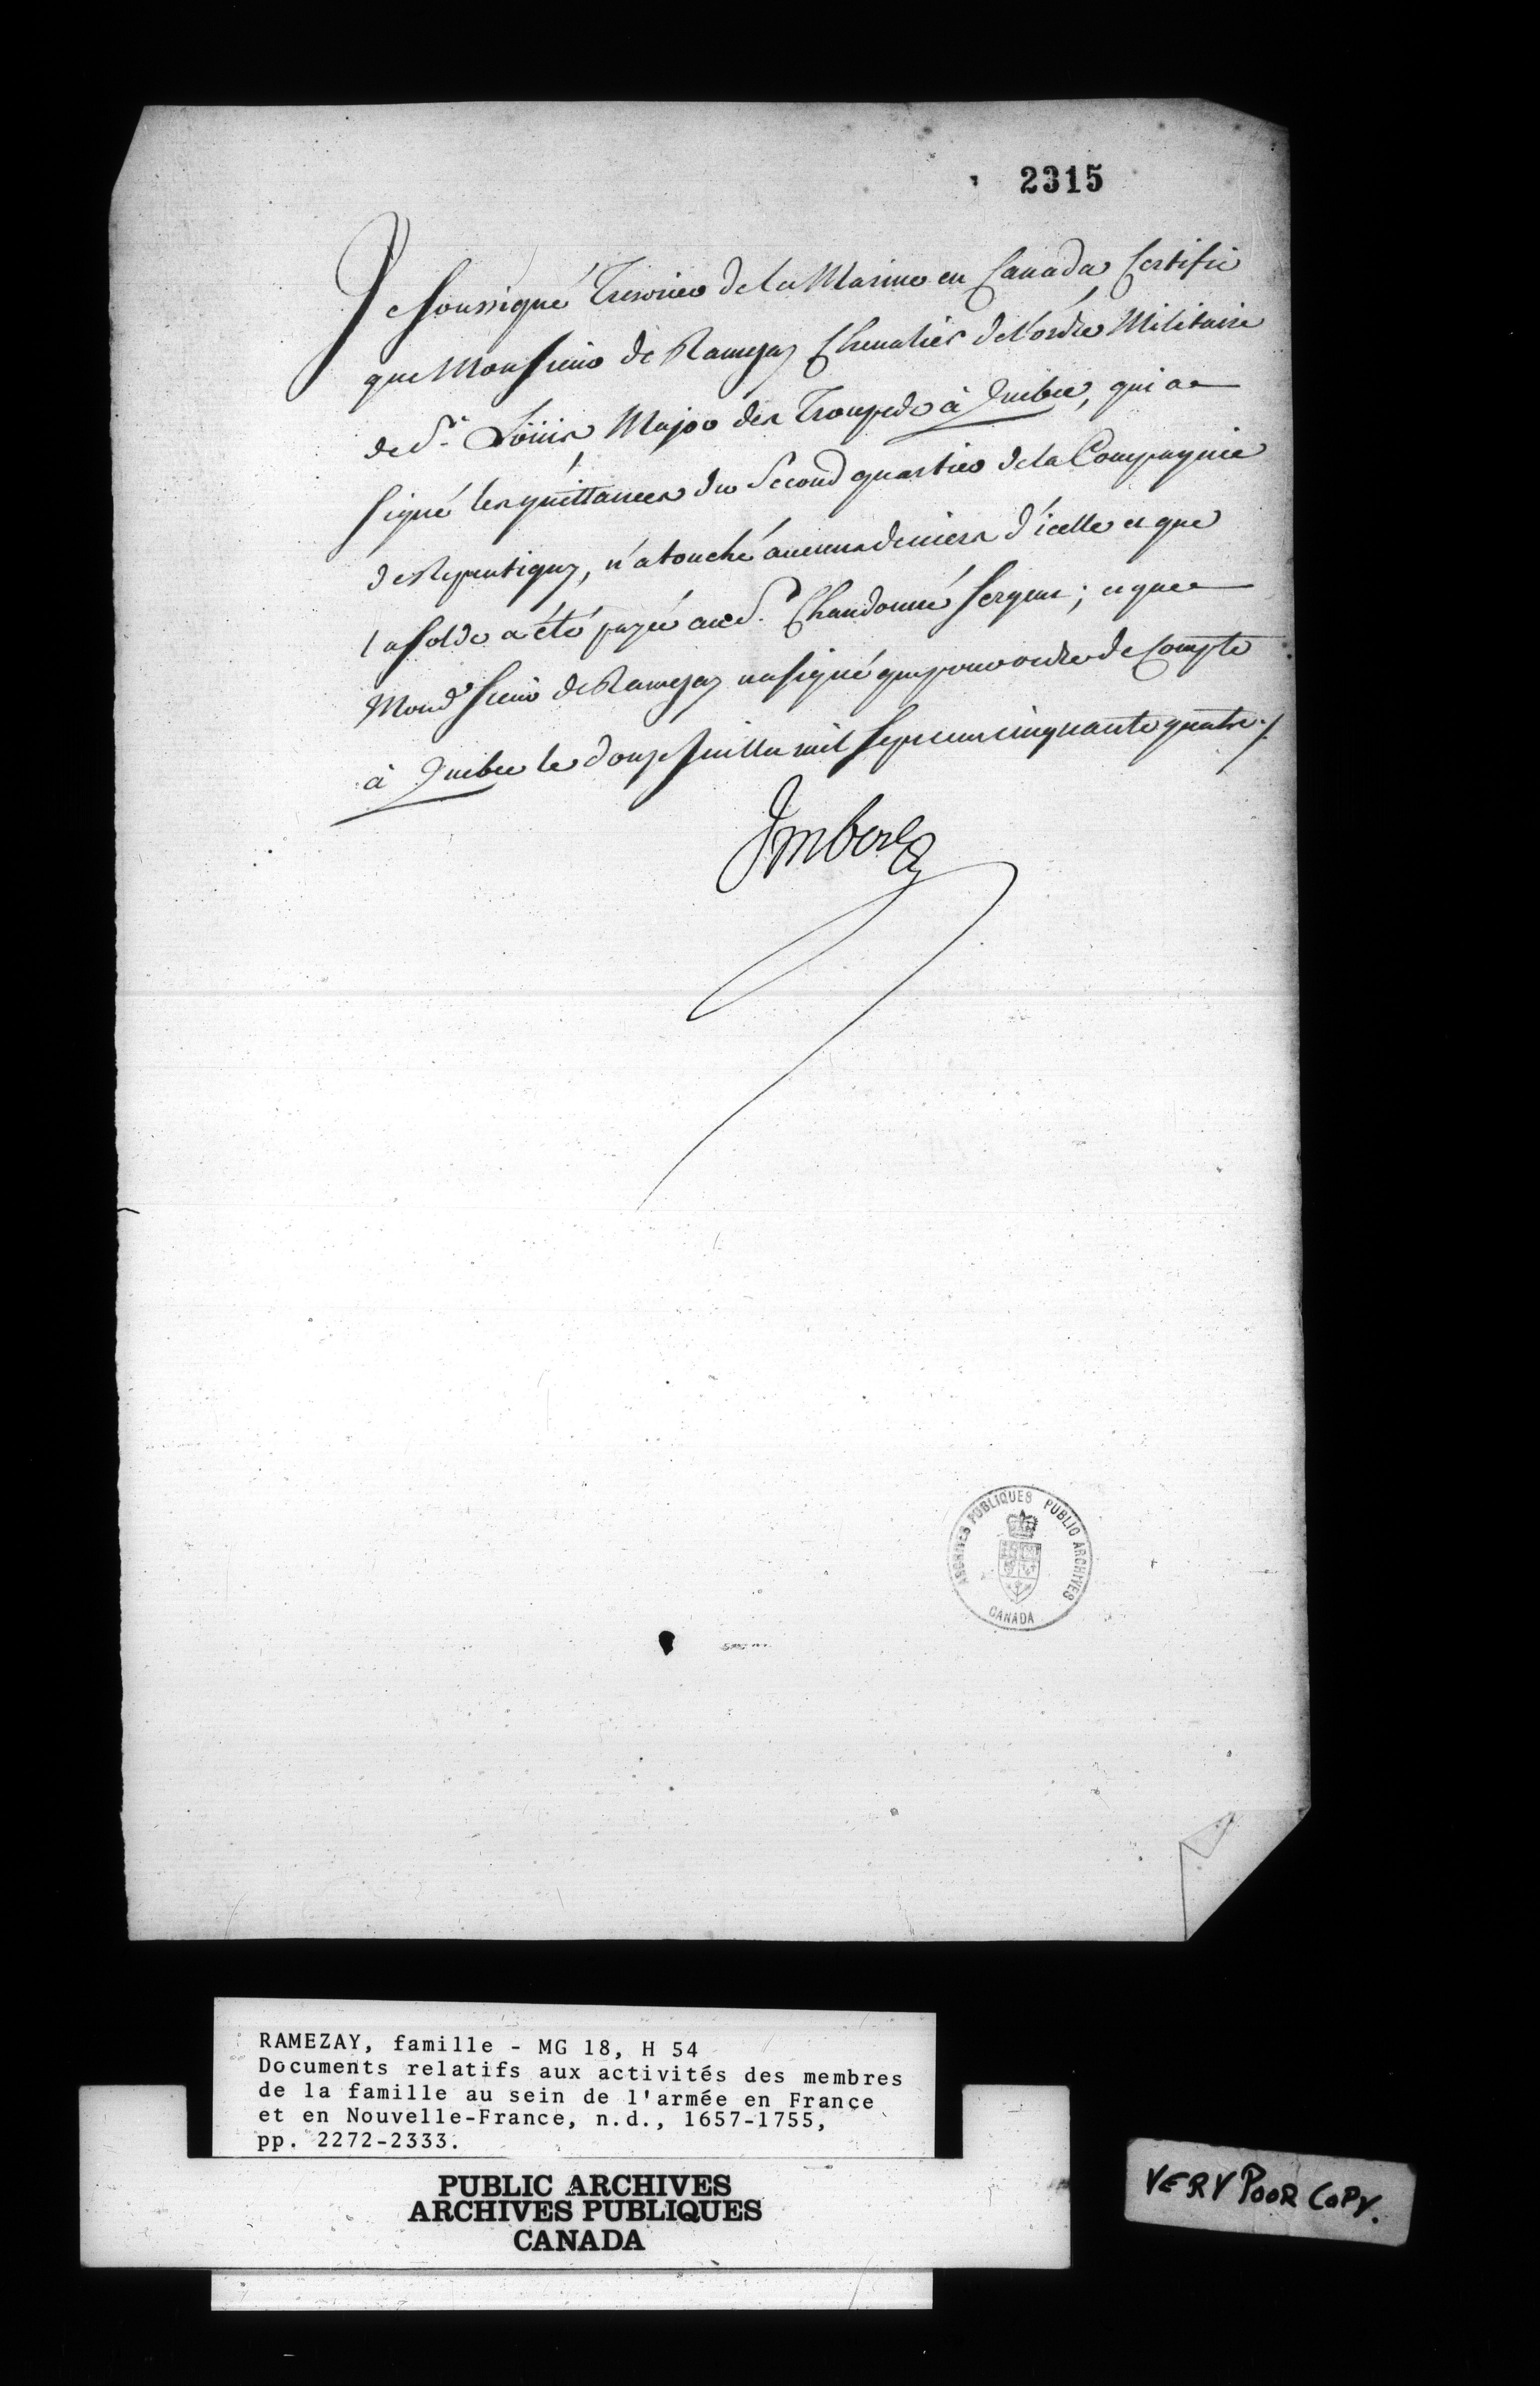 2315
Je soussigné Trésorier de la Marine en Canada, Certifie
que Monsieur de Ramezay Chevalier de l'ordre Militaire
de St. Loüis, Major des Troupes de à Quebec, qui a
signé les quittances du Second quartier de la Compagnie
de Repentigny, n'a touché aucuns deniers d'icelle et que
la solde a été payée au S. Chandonné sergent; et que
Mond. sieur de Ramezay na signé que pour ordre de Compte
à Quebec le douze Juillet mil sept cent cinquante quatre ./.
Imbert
ARCHIVES PUBLIQUES PUBLIC ARCHIVES
CANADA
RAMEZAY, famille - MG 18, H 54
Documents relatifs aux activités des membres
de la famille au sein de l'armée en France
et en Nouvelle-France, n.d., 1657-1755,
pp. 2272-2333.
PUBLIC ARCHIVES
ARCHIVES PUBLIQUES
CANADA
VERY POOR COPY.